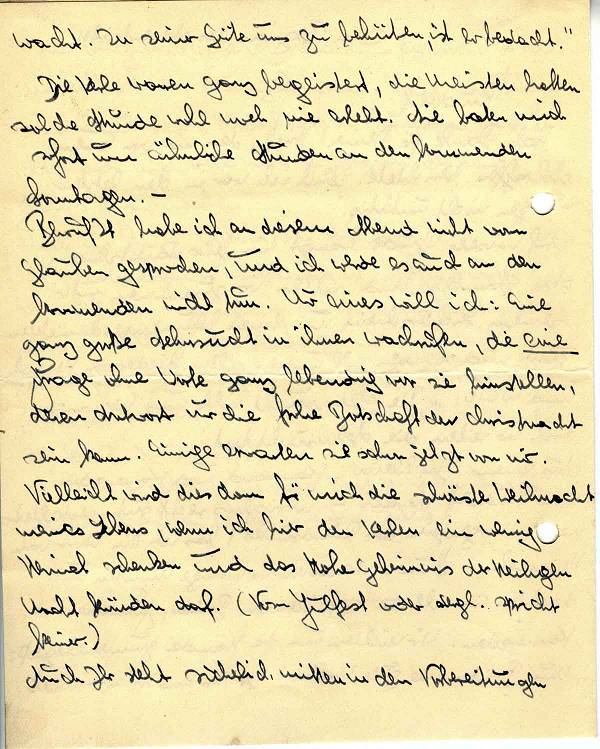 wacht. In seiner Güte uns zu behüten, ist er bedacht."
Die Kerle waren ganz begeistert, die meisten hatten
solche Stunde wohl noch nie erlebt. Sie baten mich
sofort um ähnliche Stunden an den kommenden
Sonntagen. –
Bewußt habe ich an diesem Abend nicht vom
Glauben gesprochen, und ich werde es auch an den
kommenden nicht tun. Nur eines will ich: Eine
ganz große Sehnsucht in ihnen wachrufen, die eine
Frage ohne Worte ganz lebendig vor sie hinstellen,
deren Antwort nur die frohe Botschaft der Christnacht
sein kann. Einige erwarten sie schon jetzt von mir.
Vielleicht wird dies dann für mich die schönste Weihnacht
meines Lebens, wenn ich hier den Kerlen ein wenig
Heimat schenken und das Hohe Geheimnis der Heiligen
Nacht künden darf. (Vom Julfest oder dergl. spricht
keiner.)
Auch Ihr steht sicherlich mitten in den Vorbereitungen